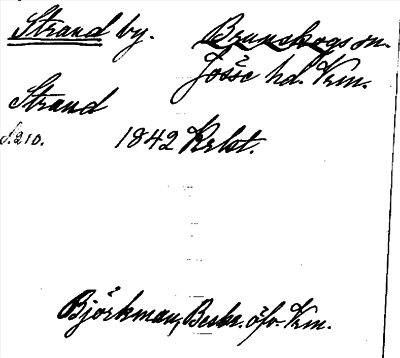 Strand by. Brunskogs sn.
Jösse hd. Vrm.
Strand
S.210. 1842 Krlst.
Björkman, Beskr. öfv. Vrm.